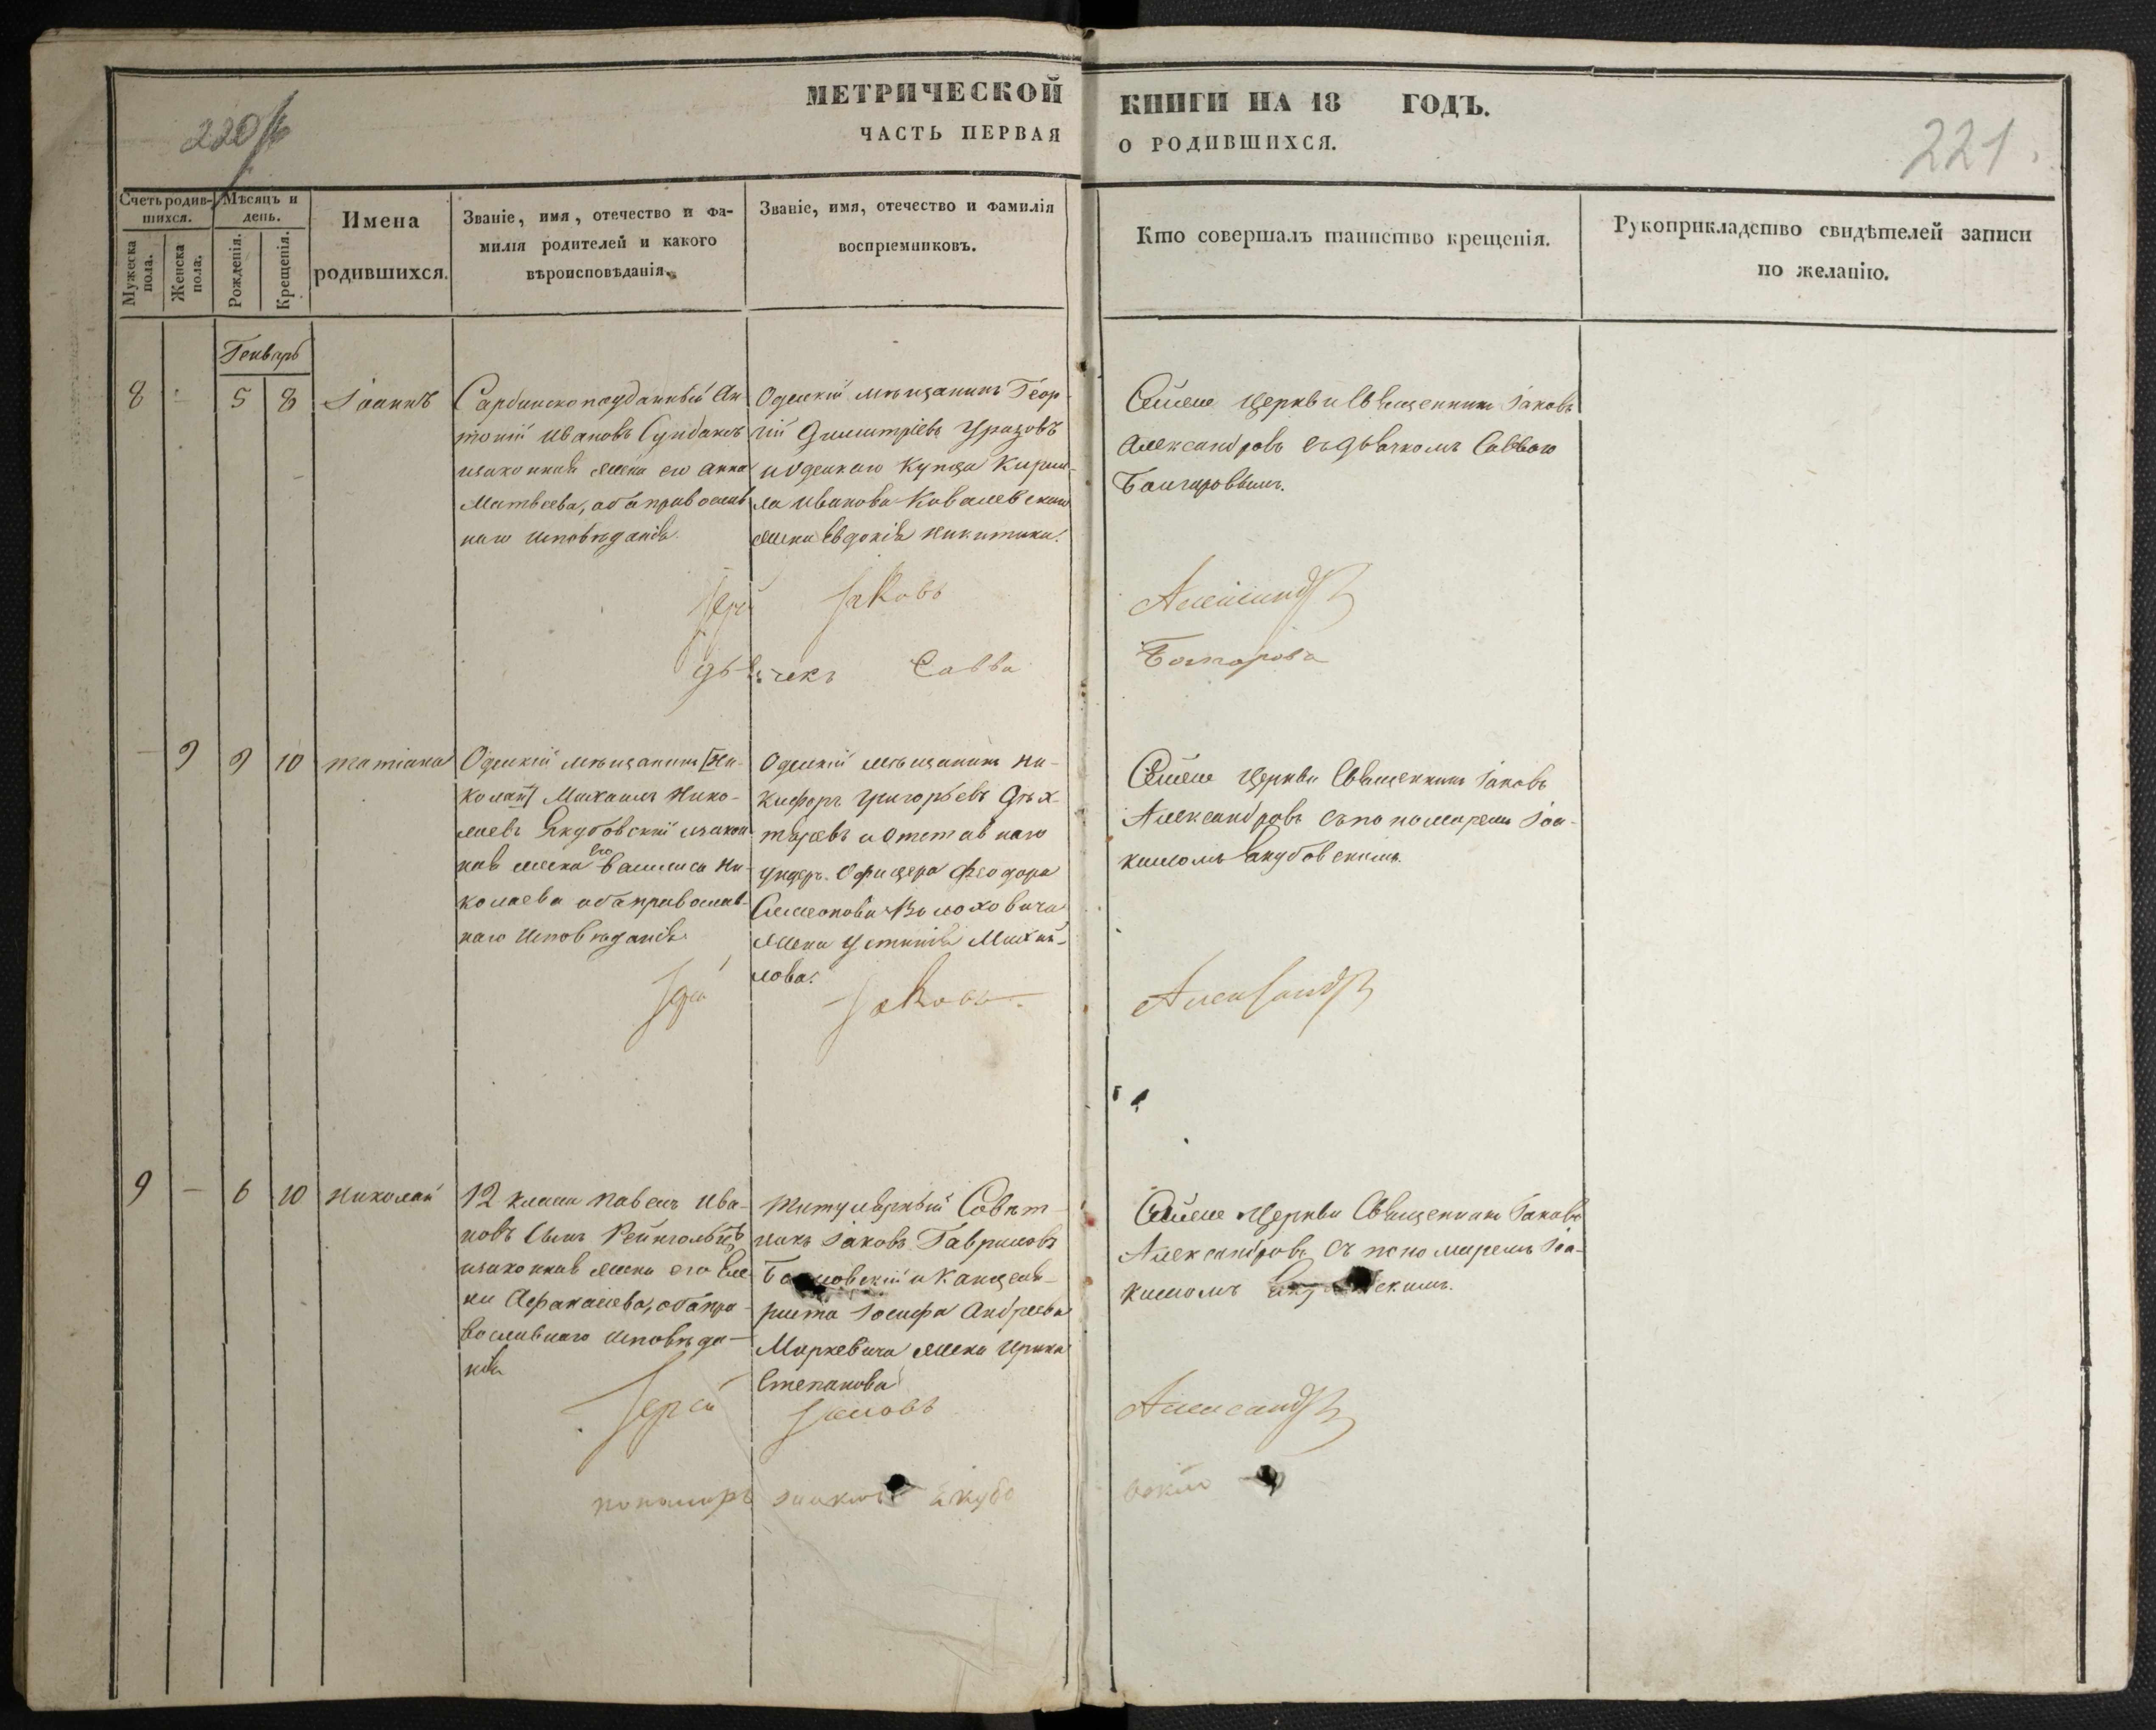 МЕТРИЧЕСКОЙ КНИГИ НА 18 ГОДЪ.
ЧАСТЬ ПЕРВАЯ О РОДИВШИХСЯ.
220
221.
Счетъ родив-шихся.
Мужеска пола.
Женска пола.
Мѣсяцъ и день.
Рожденія.
Крещенія.
Имена
родившихся.
Званіе, имя, отечество и фа-
милія родителей и какого
вѣроисповѣданія.
Званіе, имя, отечество и фамилія
воспріемниковъ.
Кто совершалъ таинство крещенія.
Рукоприкладство свидѣтелей записи
по желанію.
Генварь
8 - 5 8 Іоаннъ
Сардинскоподданный Ан
тоній Ивановъ
изаконная жена его Анна
Матвеева, оба православ
наго исповѣданія.
Одескій мѣщанинъ Геор-
гій Димитріевъ Уразовъ
иодескаго купца Кирил-
ла Иванова Ковалевскаго
жена Евдокія Никитина.
церкви Священникъ Іаковъ
Александровъ съдьячкомъ Саввою
Іерей Іаковъ Александр
дьячекъ Савва
- 9 9 10 Татіана
Одескій мѣщанинъ [Ни-
колай] Михаилъ Нико-
лаевъ Якубовскій изакон
ная жена его Василиса Ни-
колаева оба православ-
наго исповѣданія
Одескій мѣщанинъ Ни-
кифоръ Григорьевъ Дѣх-
тяревъ и Отставнаго
ундеръ-Офицера Феодора
Симеонова Волоховича
жена Устинія Михай-
лова.
церкви Священникъ Іаковъ
Александровъ съпономаремъ Іоа-
кимомъ Якубовскимъ.
Іерей Іаковъ Александр
9 - 6 10 Николай
12 класса Павелъ Ива-
новъ Сынъ
изаконная жена его Еле
на Афанасьева, оба пра-
вославнаго исповѣда-
нія
Титулярный Совѣт-
никъ Іаковъ Гавриловъ
и Канцеля-
риста Іосифа Андреева
Маркевича жена Ирина
Степанова
церкви Священникъ Іаковъ
Александровъ съ пономаремъ Іоа-
кимомъ
Іерей Іаковъ Александр
пономарь Іоакимъ Якубо
вскій